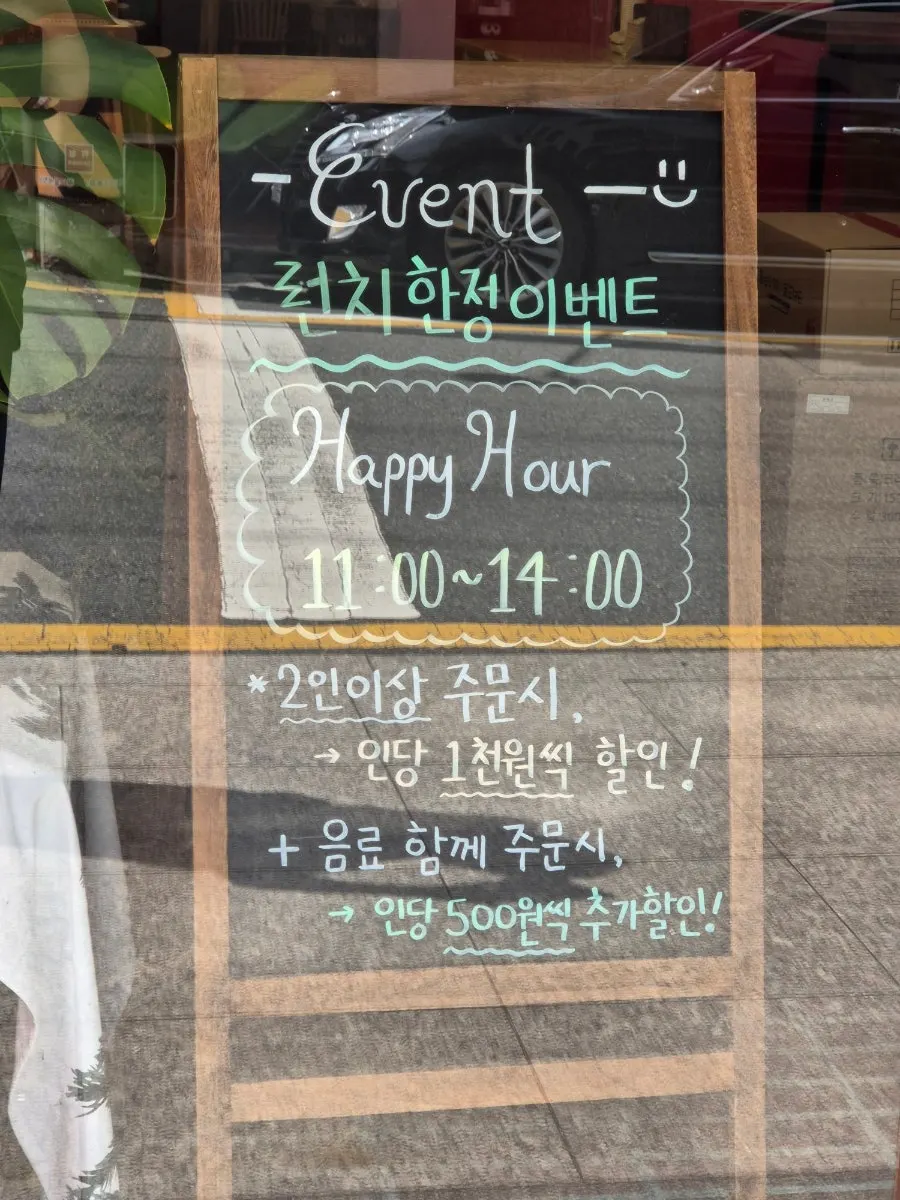 - Event -
런치 한정 이벤트
Happy Hour
11:00~14:00
*2인이상 주문시,
→ 인당 1천원씩 할인!
+ 음료 함께 주문시,
→ 인당 500원씩 추가할인!